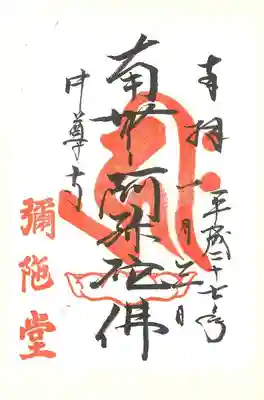 奉拝
平成二十七年
一月三日
南無阿弥陀佛
中尊寺
彌陀堂